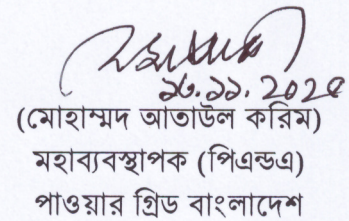 ১৩.১১.২০২৫
(মোহাম্মদ আতাউল করিম)
মহাব্যবস্থাপক (পিএন্ডএ)
পাওয়ার গ্রিড বাংলাদেশ